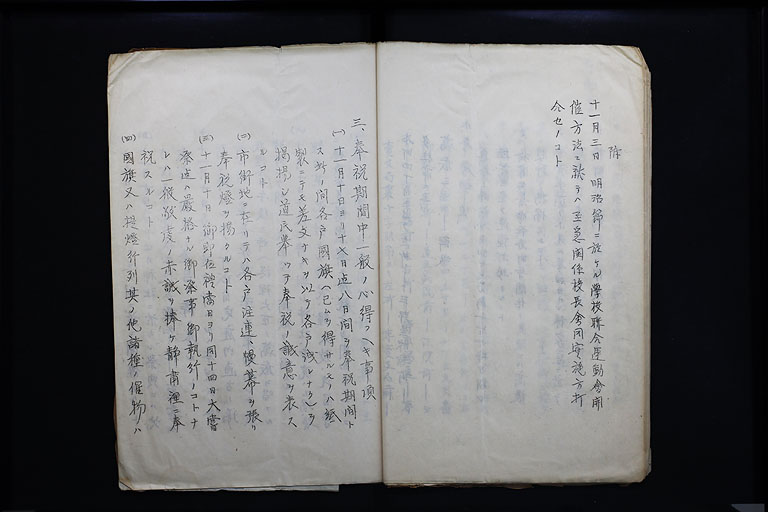 十一月三日 明治節ニ於ケル學校聯合運動會開
催方法ニ就テハ至急関係校長會同実施方打
合セノコト
三、奉祝期間中一般ノ心得フヘキ事項
(一)十一月十日ヨリ十七日迄八日間ヲ奉祝期間ト
ス此ノ間各戸國旗(已ムヲ得サルモノハ紙
製ニテモ差支ナキ)ヲ以テ各戸洩レナク之ヲ
掲揚シ道民擧ツテ奉祝ノ誠意ヲ表ス
ルコト
(二)市街地ニ在リテハ各戸注連、幔幕ヲ張リ
奉祝燈ヲ掲クルコト
(三)十一月十日御即位礼當日ヨリ同十四日大嘗
祭迄ハ最格ナル御祭事御執行ノコトナ
レハ一般敬虔ノ赤誠ヲ捧ケ静肅裡ニ奉
祝スルコト
(四)國旗又ハ提燈行列其ノ他諸種ノ催物ハ